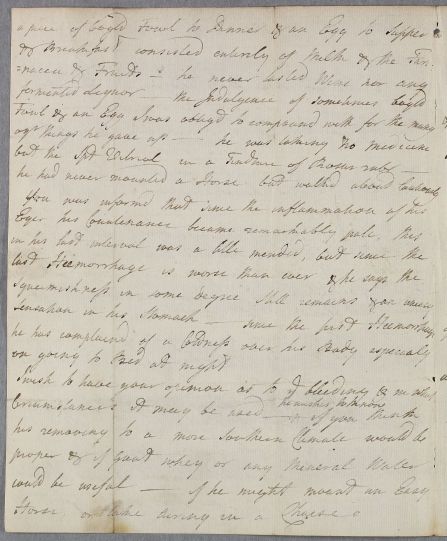 a piece of boyl'd Fowl to Dinner & an Egg to Supper
& Breakfast consisted entirely of Milk & the Fari
=nacea & Fruits — he never tasted Wine nor any
fermented Liquor — the Indulgence of sometimes boyl'd
Fowl & an Egg I was oblig'd to compound with for the many
oyr things he gave up — he was taking no medicine
but the Spt Vitriol in a Tincture of
he had never mounted a Horse but walk'd about
You was informd that since the inflammation of his
Eyes his Countenance became remarkably pale this
in his last interval was a little mended, but since the
last Hæmorrhage is worse than ever & he says the
squeamishness in some degree still remains & an uneasy
Sensation in his Stomach — since the first Hæmorrhage
he has complained of a Coldness over his Body especialy
on going to Bed at night
I wish to have your opinion as to ye bleeding & in what
Circumstances it may be used — if you think
his removing to a more Southern Climate would be
proper & if Goat whey or any Mineral Water
would be useful — if he might mount an Easy
Horse or take airing in a Chaise